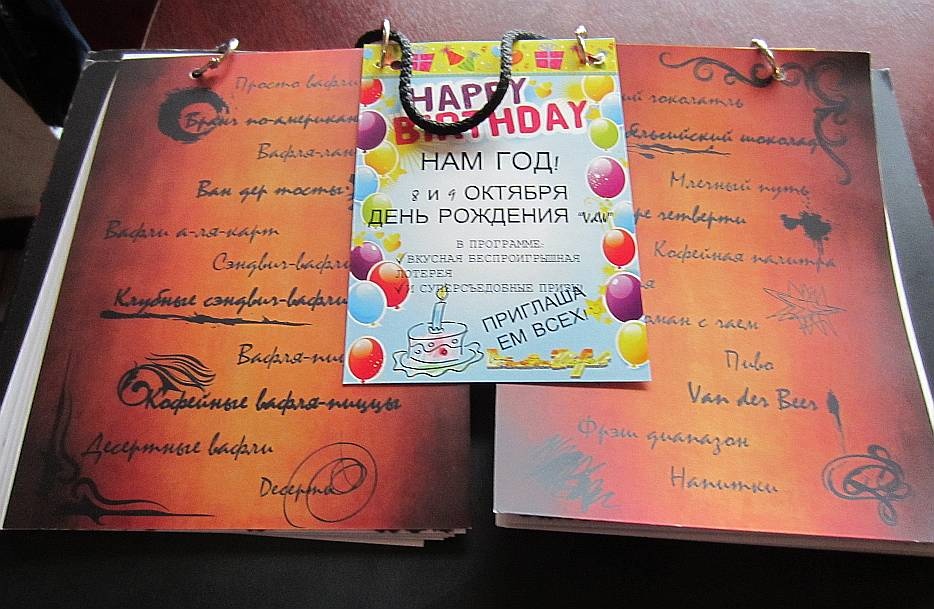 Просто вафли
Бранч по-американ
Вафля-лан
Ван дер тосты
Вафли а-ля-карт
Сэндвич-вафли
Клубные сэндвич-вафли
Вафля-пи
Кофейные вафля-пиццы
Десертные вафли
Десерты
HAPPY
BIRTHDAY
НАМ ГОД!
8 И 9 ОКТЯБРЯ
ДЕНЬ РОЖДЕНИЯ
В ПРОГРАММЕ:
✓ВКУСНАЯ БЕСПРОИГРЫШНАЯ
ЛОТЕРЕЯ
✓И СУПЕРСЪЕДОБНЫЕ ПРИЗЫ
ПРИГЛАША
ЕМ ВСЕХ!
ий чоколатль
бельгийский шоколад
Млечный путь
ре четверти
Кофейная палитра
я
оман с чаем
Пиво
Van der Beer
Фрэш диапазон
Напитки